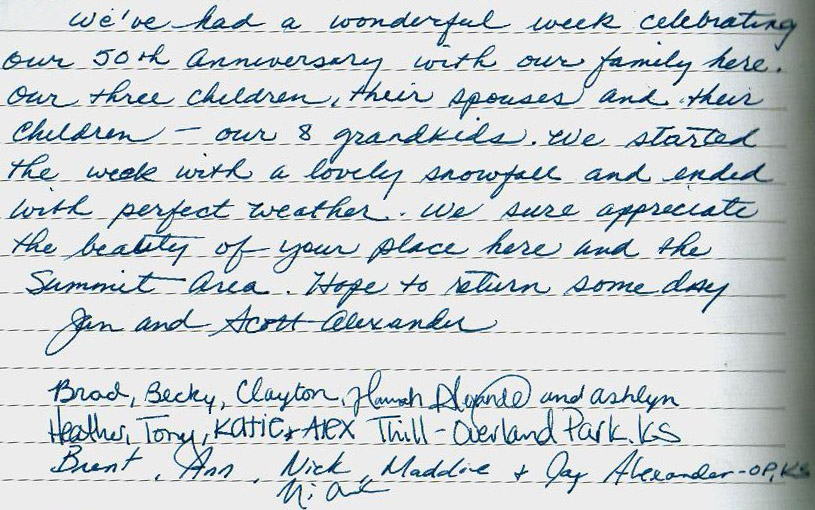 We've had a wonderful week celebrating
our 50th Anniversary with our family here.
Our three children, their spouses and their
children – our 8 grandkids. We started
the week with a lovely snowfall and ended
with perfect weather. We sure appreciate
the beauty of your place here and the
Summit Area. Hope to return some day
Jan and Scott Alexander
Brad, Becky, Clayton, Hannah and Ashlyn
Heather, Tony, KATIE & ALEX Thill - Overland Park, KS
Brent, Ann, Nick, Maddie & Jay Alexander - OP, KS